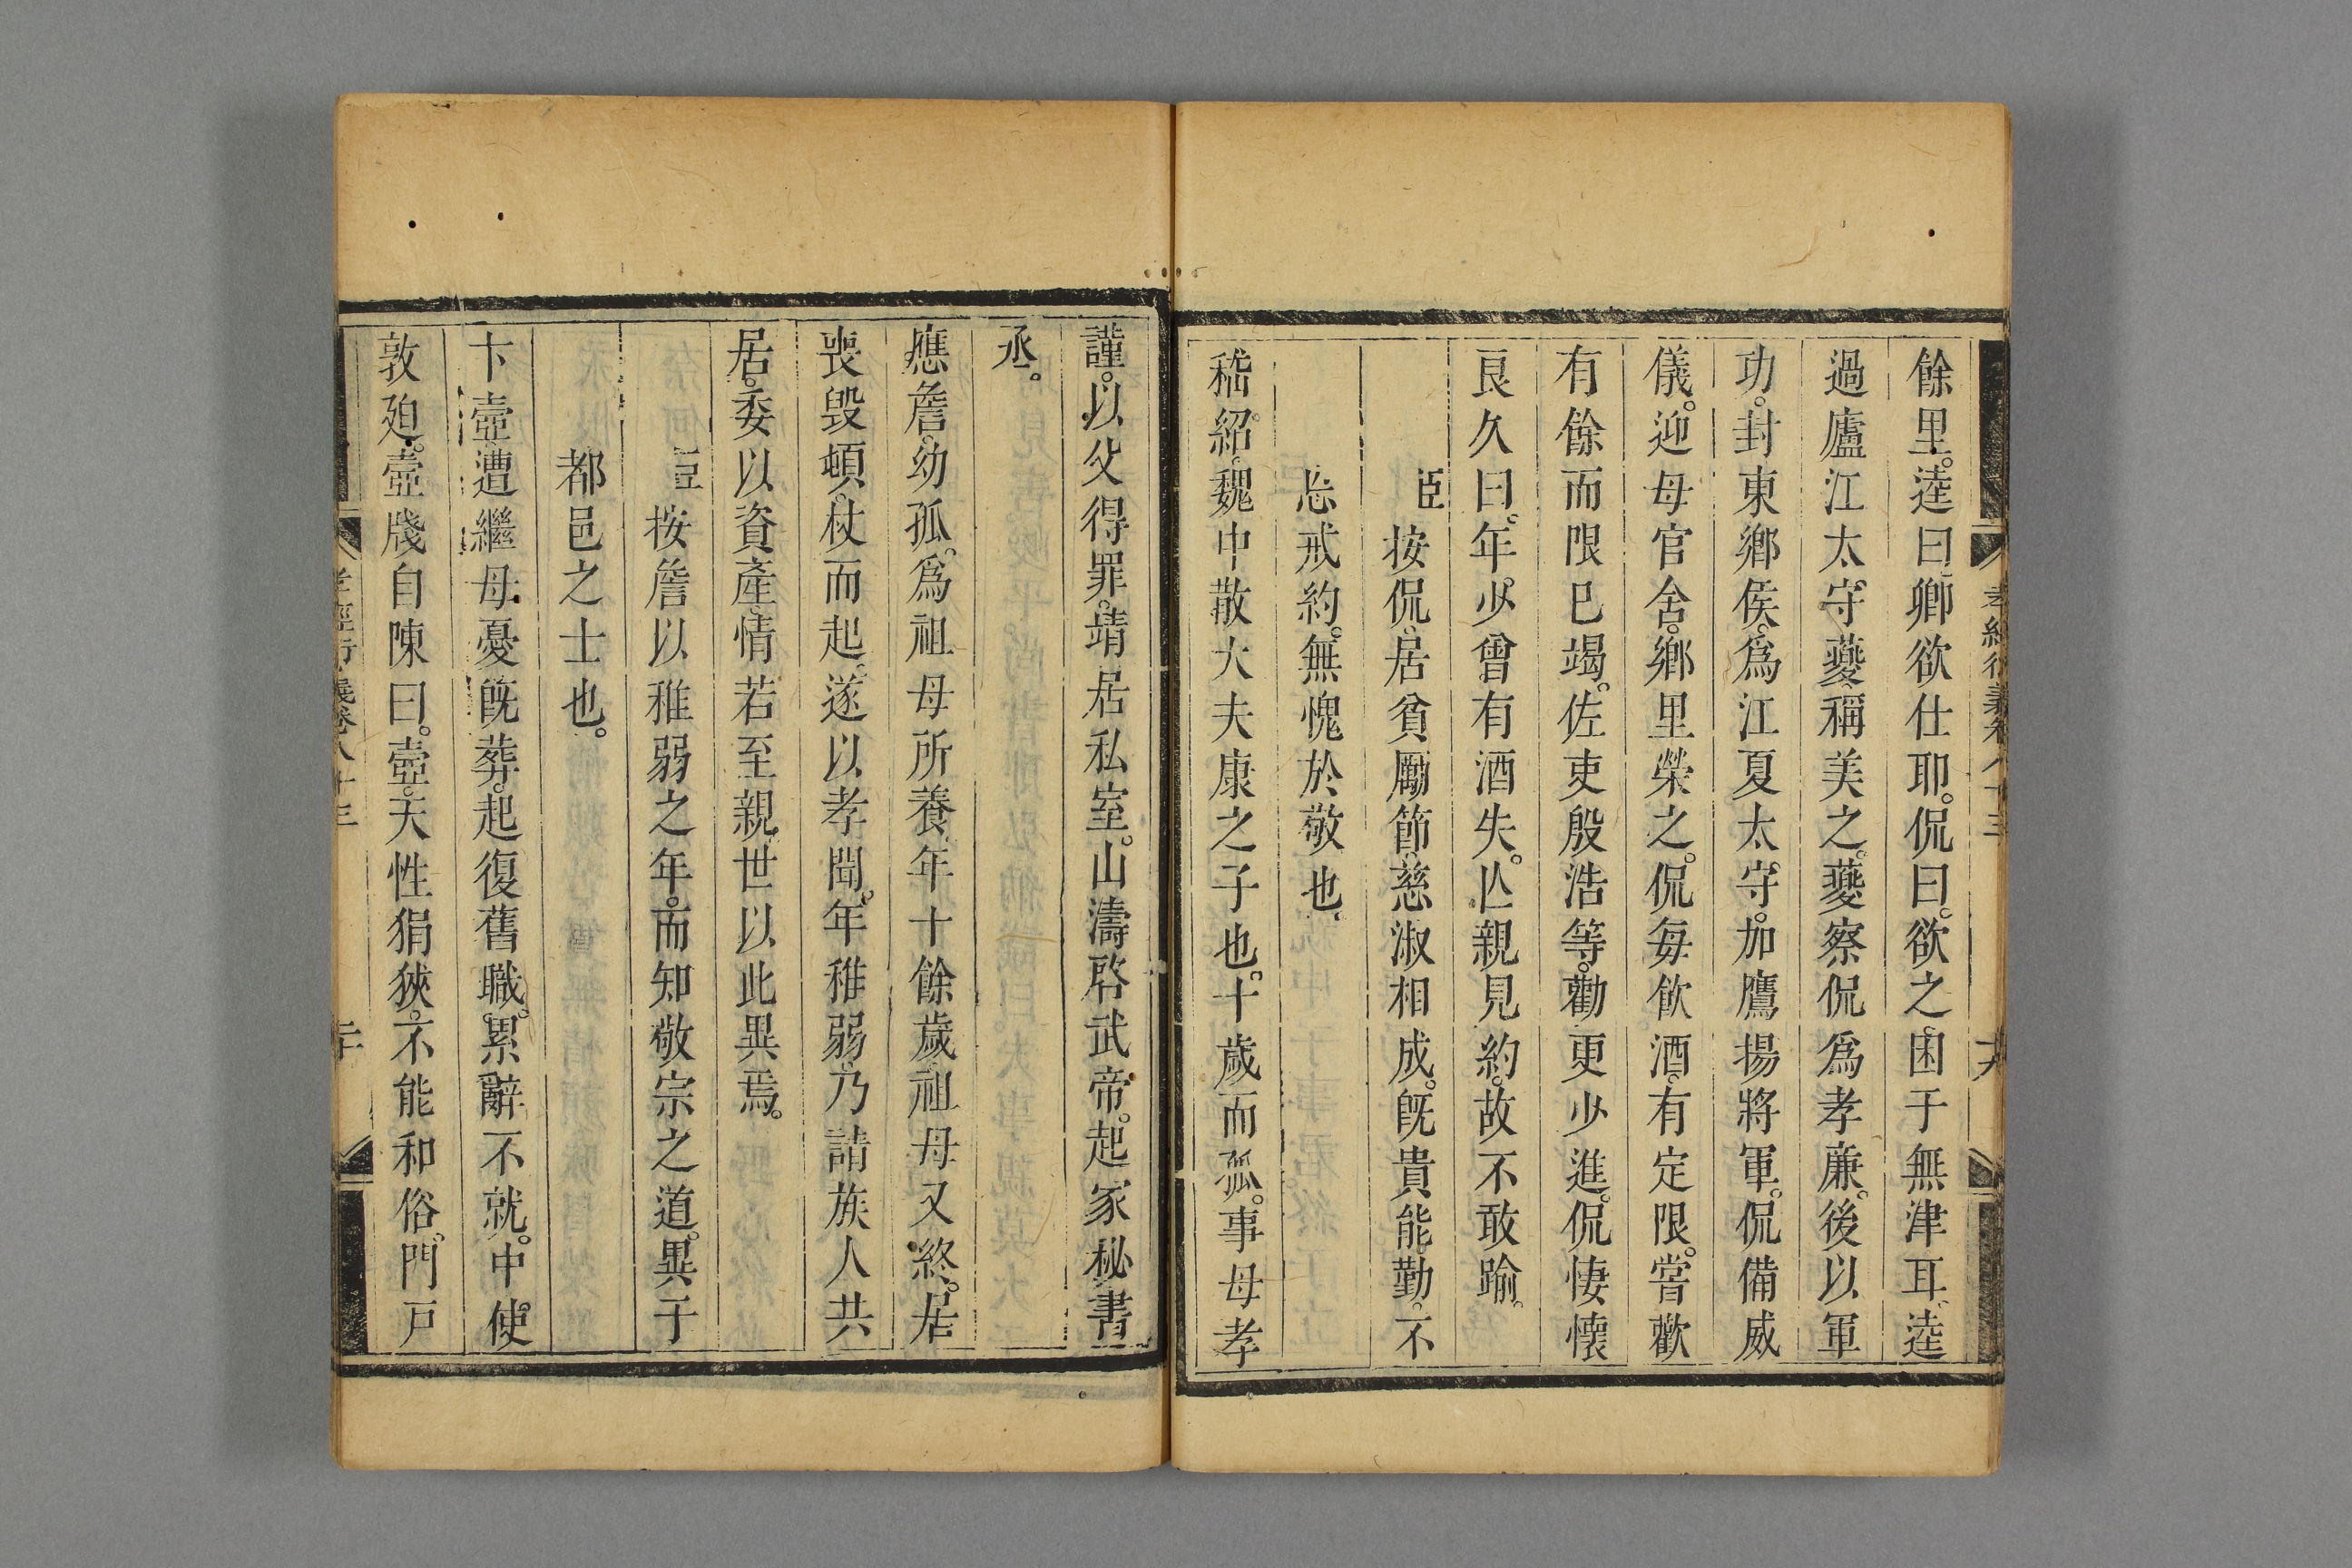 孝經衍義卷八十三
十九
餘里。逵曰。卿欲仕耶。侃曰。欲之。困于無津耳。逵
過廬江太守夔。稱美之。夔察侃爲孝廉。後以軍
功。封東鄉侯。爲江夏太守。加鷹揚將軍。侃備威
儀。迎母官舍。鄉里榮之。侃每飲酒。有定限。嘗歡
有餘而限已竭。佐吏殷浩等。勸更少進。侃悽懷
良久曰。年少。曾有酒失。亾親見約。故不敢踰。
臣按侃居貧勵節。慈淑相成。旣貴能勤。不
忘戒約。無愧於敬也。
嵇紹。魏中散大夫康之子也。十歲而孤。事母孝
謹。以父得罪。靖居私室。山濤啓武帝。起家秘書
丞。
應詹。幼孤。爲祖母所養。年十餘歲。祖母又終。居
喪毀頓。杖而起。遂以孝聞。年稚弱。乃請族人共
居。委以資產。情若至親。世以此異焉。
臣按詹以稚弱之年。而知敬宗之道。異于
都邑之士也。
卞壼遭繼母憂。旣葬。起復舊職。累辭不就。中使
敦廹。壼牋自陳曰。壼天性狷狹。不能和俗。門戸
孝經衍義卷八十三
二十